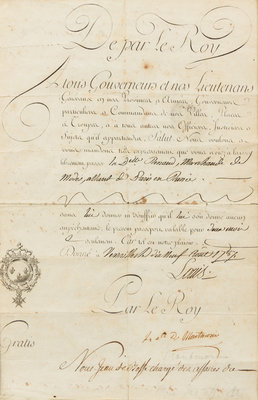 De par Le Roy
A tous Gouverneurs et nos Lieutenans
Généraux en nos Provinces & Armées, Gouverneurs
particuliers & Commandans de nos Villes, Places
& Troupes, & à tous autres nos Officiers, Justiciers &
Sujets qu'il appartiendra Salut. Nous voulons &
vous mandons très expressément que vous ayez à laisser
librement passer la Dlle Renaud, Marchande de
Modes, allant de Paris en Russie
sans lui donner ni souffrir qu'il lui soit donné aucun
empêchement; le présent passeport valable pour deux mois
seulement. Car tel est notre plaisir.
Donné à Versailles le neuf
Louis
Par Le Roy
Le Cte De Montmorin
Gratis
Nous chargé des affaires de